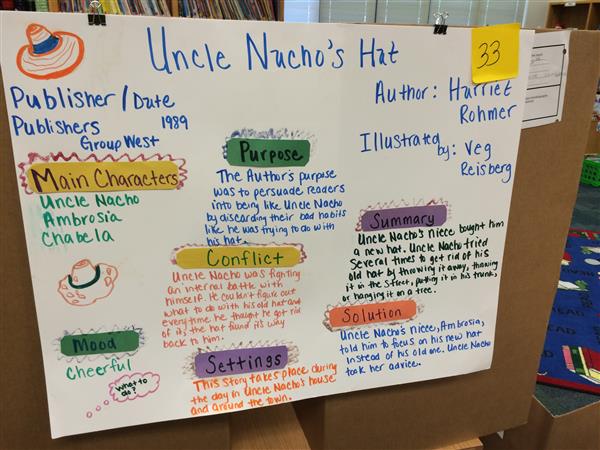 Uncle Nacho's Hat
33
Publisher/Date
Publishers 1989
Group West
Author: Harriet
Rohmer
Illustrated
by: Veg
Reisberg
Main Characters
Uncle Nacho
Ambrosia
Chabela
Purpose
The Author's purpose
was to persuade readers
into being like Uncle Nacho
by discarding their bad habits
like he was trying to do with
his hat.
Conflict
Uncle Nacho was fighting
an internal battle with
himself. He couldn't figure out
what to do with his old hat and
everytime he thought he got rid
of it, the hat found it's way
back to him.
Summary
Uncle Nacho's niece bought him
a new hat. Uncle Nacho tried
several times to get rid of his
old hat by throwing it away, throwing
it in the street, putting it in his trunk,
or hanging it on a tree.
Mood
Cheerful
what to
do?
Settings
This story takes place during
the day in Uncle Nacho's house
and around the town.
Solution
Uncle Nacho's niece, Ambrosia,
told him to focus on his new hat
instead of his old one. Uncle Nacho
took her advice.